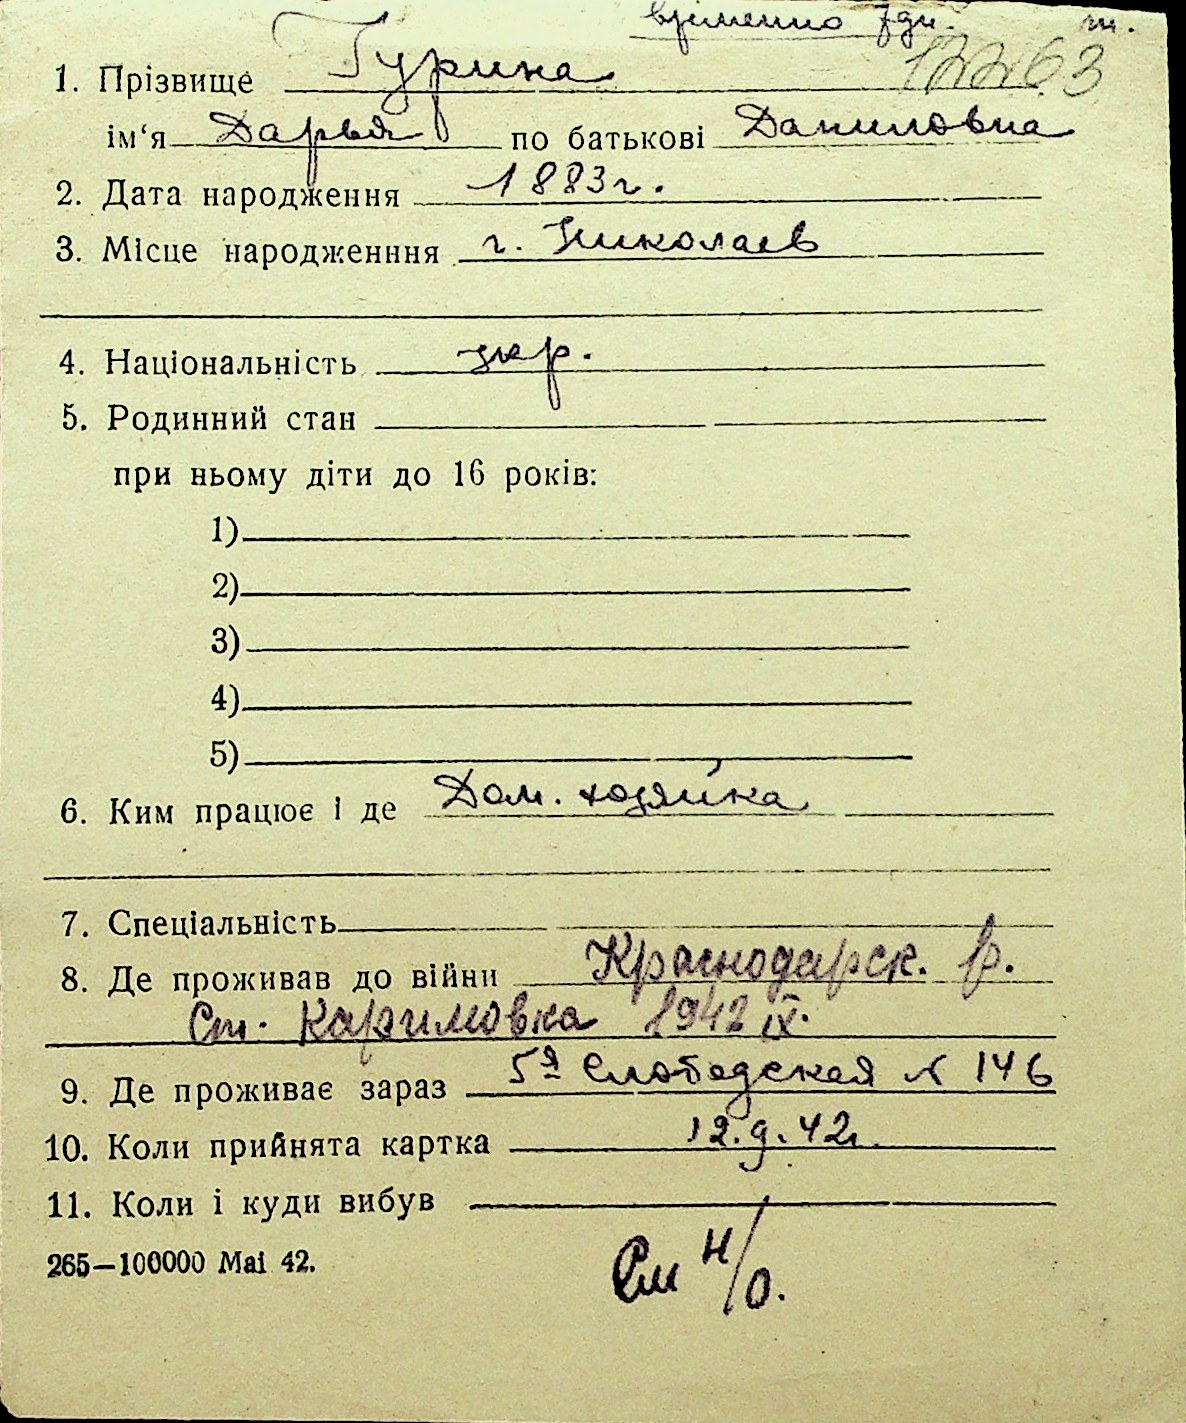 временно
12263
1. Прізвище Гурина
ім‘я Дарья по батькові Даниловна
2. Дата народження 1883г.
3. Місце народженння г. Николаев
4. Національність укр.
5. Родинний стан
при ньому діти до 16 років:
1)
2)
3)
4)
5)
6. Ким працює і де Дом. хозяйка
7. Спеціальність
8. Де проживав до війни Краснодарск. р.
Ст. Каримовка 1942 IX.
9. Де проживає зараз 5я Слободская № 146
10. Коли прийнята картка 12.9.42г.
11. Коли і куди вибув
265—100000 Mai 42.
См н/о.